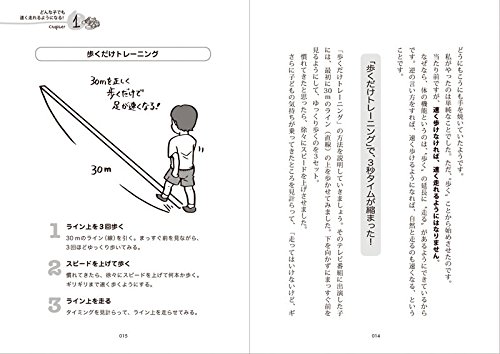 どうにもこうにも手を焼いていたようです。
私がやったのは単純なことでした。ただ、“歩く”ことから始めさせたのです。
当たり前ですが、速く歩けなければ、速く走れるようにはなりません。
なぜなら、体の機能というのは、“歩く”の延長に“走る”があるようにできているから
です。逆の言い方をすれば、速く歩けるようになれば、自然と走るのも速くなる、という
ことです。
「歩くだけトレーニング」で、3秒タイムが縮まった!
「歩くだけトレーニング」の方法を説明していきましょう。そのテレビ番組に出演した子
には、最初に30mのライン(直線)の上を歩かせてみました。下を向かずにまっすぐ前を
見るようにして、ゆっくり歩くのを3セット。
慣れてきたと思ったら、徐々にスピードを上げさせました。
さらに子どもの気持ちが乗ってきたところを見計らって、「走ってはいけないけど、ギ
014
どんな子でも
速く走れるようになる!
Chapter 1
歩くだけトレーニング
30mを正しく
歩くだけで
足が速くなる!
30m
1 ライン上を3回歩く
30mのライン(線)を引く。まっすぐ前を見ながら、
3回ほどゆっくり歩いてみる。
2 スピードを上げて歩く
慣れてきたら、徐々にスピードを上げて何本か歩く。
ギリギリまで速く歩くようにする。
3 ライン上を走る
タイミングを見計らって、ライン上を走らせてみる。
015